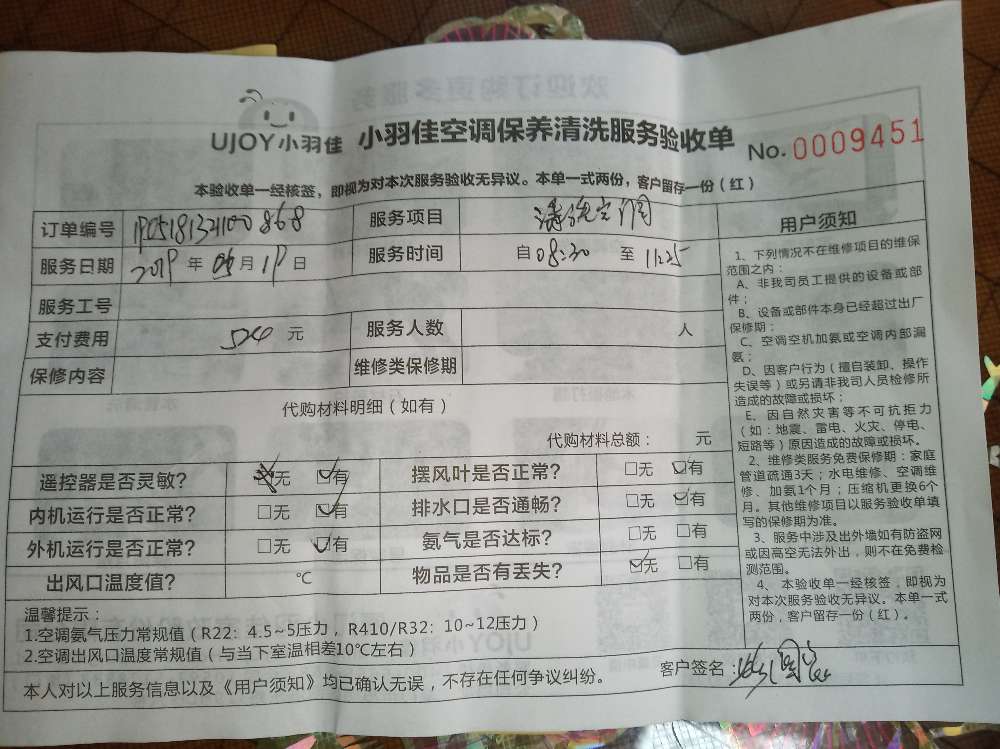 UJOY小羽佳 小羽佳空调保养清洗服务验收单 No.0009451
本验收单一经核签，即视为对本次服务验收无异议。本单一式两份，客户留存一份（红）
订单编号 服务项目 清洗空调
服务日期 2019年05月19日 服务时间 自08:30 至11:25
服务工号
支付费用 540元 服务人数 人
保修内容 维修类保修期
代购材料明细（如有）
代购材料总额： 元
遥控器是否灵敏? 无 ☑有 摆风叶是否正常? □无 ☑有
内机运行是否正常? □无 ☑有 排水口是否通畅? □无 ☑有
外机运行是否正常? □无 ☑有 氨气是否达标? □无 □有
出风口温度值? ℃ 物品是否有丢失? ☑无 □有
温馨提示：
1.空调氨气压力常规值（R22：4.5~5压力，R410/R32：10~12压力）
2.空调出风口温度常规值（与当下室温相差10℃左右）
本人对以上服务信息以及《用户须知》均已确认无误，不存在任何争议纠纷。 客户签名：
用户须知
1、下列情况不在维修项目的维保
范围之内：
A、非我司员工提供的设备或部
件；
B、设备或部件本身已经超过出厂
保修期；
C、空调空机加氨或空调内部漏
氨；
D、因客户行为（擅自装卸、操作
失误等）或另请非我司人员检修所
造成的故障或损坏；
E、因自然灾害等不可抗拒力
（如：地震、雷电、火灾、停电、
短路等）原因造成的故障或损坏。
2、维修类服务免费保修期：家庭
管道疏通3天；水电维修、空调维
修、加氨1个月；压缩机更换6个
月。其他维修项目以服务验收单填
写的保修期为准。
3、服务中涉及出外墙如有防盗网
或因高空无法外出，则不在免费检
测范围。
4、本验收单一经核签，即视为
对本次服务验收无异议。本单一式
两份，客户留存一份（红）。